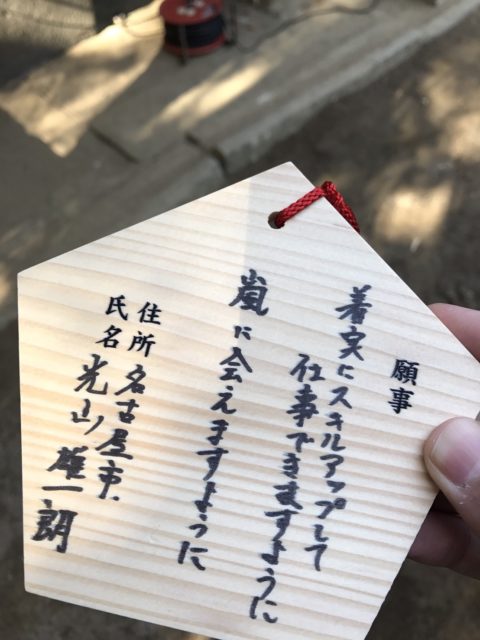 願事
着実にスキルアップして
仕事できますように
嵐に会えますように
住所 名古屋市.
氏名 光山雄一朗